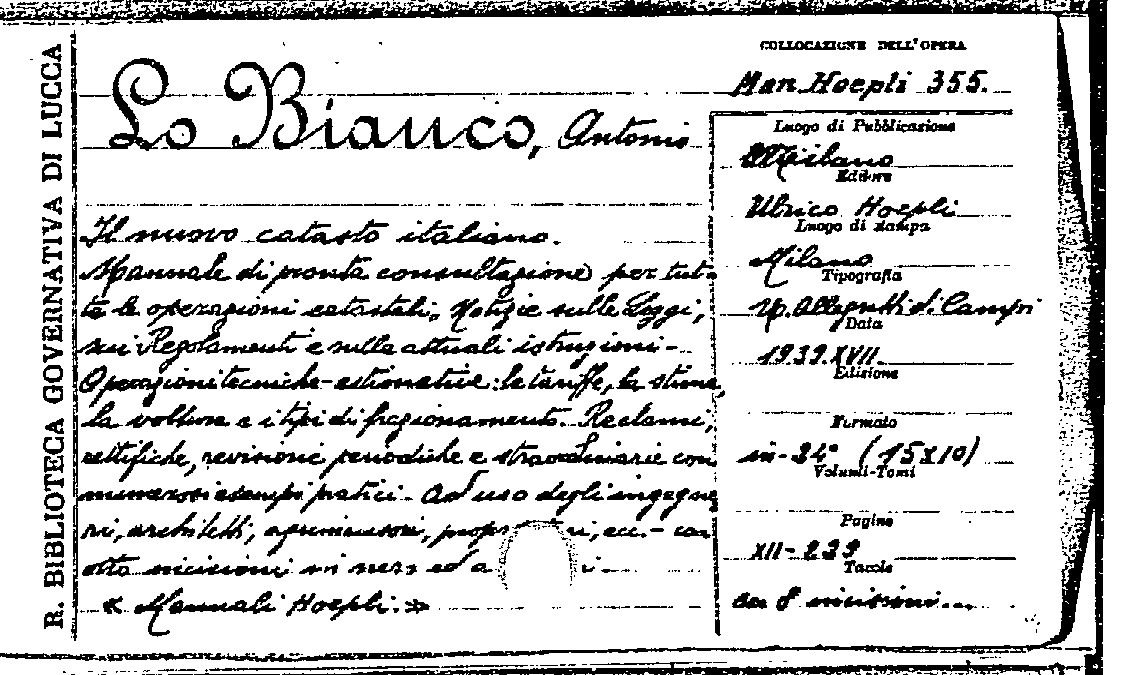 R. BIBLIOTECA GOVERNATIVA DI LUCCA
Lo Bianco, Antonio
Il nuovo catasto italiano.
Mannale di pronta consultazione per tut-
te le operazioni catastali, Notizie sulle Leggi,
sui Regolamenti e sulle attuali istruzioni-
Operazioni tecniche-estimative: le tariffe, la stima,
la volture e i tipi di frazionamento. Reclami,
rettifiche, revisione periodiche e straordinarie con
numerosi esempi pratici. Ad uso degli ingegne
ri, architetti, agrimensori, ecc. - con
otto incisioni in nero ed a
« Mannali Hoepli. »
COLLOCAZIONE DELL'OPERA
Man. Hoepli 355.
Luogo di Pubblicazione
Milano
Editore
Ulrico Hoepli
Luogo di stampa
Milano
Tipografia
U. Allegretti d. Campi
Data
1939. XVII
Edizione
Formato
in-24° (15x10)
Volumi-Tomi
Pagine
XII-239
Tavole
con 8 incisioni...